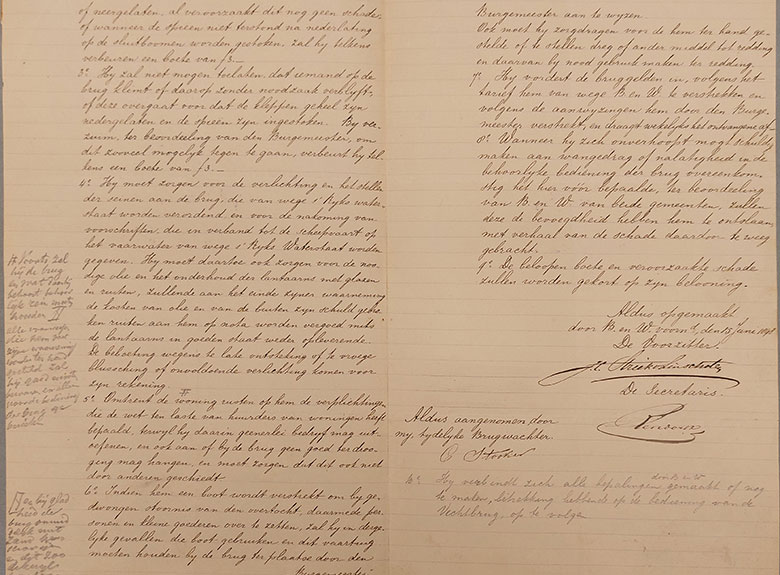 of neergelaten, al veroorzaakt dit nog geen schade,
of wanneer de speeën niet terstond na nederlating
op de sluitboomen worden gestoken, zal hy telkens
verbeuren een boete van f3.—
3º. Hy zal niet mogen toelaten, dat iemand op de
brug klimt of daarop zonder noodzaak verblyft,
of deze overgaat voor dat de kleppen geheel zyn
nedergelaten en de speeën zyn ingestoken. By ver-
zuim, ter beoordeeling van den Burgemeester, om
dit zooveel mogelyk tegen te gaan, verbeurt hy tel-
kens een boete van f3.—
4º. Hy moet zorgen voor de verlichting en het stellen
der seinen aan de brug, die van wege 's Ryks water-
staat worden verordend en voor de nakoming van
voorschriften, die in verband tot de scheepvaart op
het vaarwater van wege 's Ryks Waterstaat worden
gegeven. Hy moet daartoe ook zorgen voor de noo-
dige olie en het onderhoud der lantaarns met glazen
en ruiten, zullende aan het einde zyner waarneming
de kosten van olie en van de buiten zyn schuld gebro-
ken ruiten aan hem op nota worden vergoed mits
de lantaarns in goeden staat weder opleverende.
De beboeting wegens te late ontsteking of te vroege
blussching of onvoldoende verlichting komen voor
zyn rekening.
5º. Omtrent de woning rusten op hem de verplichtingen
die de wet ten laste van huurders van woningen heeft
bepaald, terwyl hy daarin geenerlei bedryf mag uit-
oefenen, en ook aan of by de brug geen goed ter droo-
ging mag hangen, en moet zorgen dat dit ook niet
door anderen geschiedt.
6º. Indien hem een boot wordt verstrekt om by ge-
dwongen stoornis van den overtocht, daarmede per-
sonen en kleine goederen over te zetten, zal hy in derge-
lyke gevallen die boot gebruiken en dit vaartuig
moeten houden by de brug ter plaatse door den
Burgemeester
Voorts zal
hy de brug
alle
Burgemeester aan te wyzen.
Ook moet hy zorgdragen voor de hem ter hand ge-
stelde of te stellen dreg of ander middel tot redding
en daarvan by nood gebruik maken ter redding.
7º. Hy vordert de bruggelden in, volgens het
tarief hem van wege B. en W. te verstrekken en
volgens de aanwyzingen hem door den Burge-
meester verstrekt, en draagt wekelyks het ontvangene af.
8º. Wanneer hy zich onverhoopt mogt schuldig
maken aan wangedrag of nalatigheid in de
behoorlyke bediening der brug overeenkom-
stig het hier vóór bepaalde, ter beoordeeling
van B. en W. van beide gemeenten, zullen
deze de bevoegdheid hebben hem te ontslaan,
met verhaal van de schade daardoor te weeg
gebracht.
9º. De beloopen boete en veroorzaakte schade
zullen worden gekort op zyn belooning.
Aldus opgemaakt
door B. en W. voorn.d, den 15 Juni
De Voorzitter
De Secretaris.
Aldus aangenomen door
my, tydelyke Brugwachter.
10º. Hy verbindt zich alle bepalingen door B en W gemaakt of nog
te maken, betrekking hebbende op de bediening van de
Vechtbrug, op te volgen